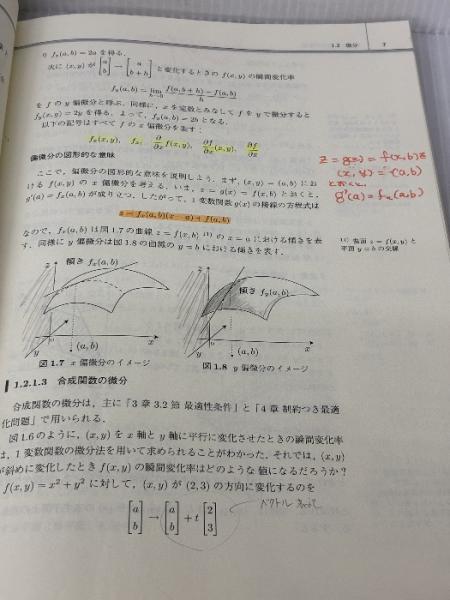 1.2 微分 7
り f_x(a, b) = 2a を得る.
次に (x, y) が [a b] → [a b + h] と変化するときの f(x, y) の瞬間変化率
f_y(a, b) = lim h→0 f(a, b + h) − f(a, b) / h
を f の y 偏微分と呼ぶ. 同様に, x を定数とみなして f を y で微分すると
f_y(x, y) = 2y を得る. よって, f_y(a, b) = 2b となる.
以下の記号はすべて f の x 偏微分を表す:
f_x(x, y), f_x, ∂/∂x f(x, y), ∂f/∂x (x, y), ∂f/∂x
偏微分の図形的な意味
ここで, 偏微分の図形的な意味を説明しよう. まず, (x, y) = (a, b) にお
ける f(x, y) の x 偏微分を考える. いま, z = g(x) = f(x, b) とおくと,
g'(a) = f_x(a, b) が成り立つ. したがって, 1 変数関数 g(x) の接線の方程式は
z = f_x(a, b)(x − a) + f(a, b)
なので, f_x(a, b) は図 1.7 の曲線 z = f(x, b) の x = a における傾きを表
す. 同様に y 偏微分は図 1.8 の曲線の y = b における傾きを表す.
z = g(x) = f(x, b)
(x, y) = (a, b)
とおくと,
g'(a) = f_x(a, b)
曲面 z = f(x, y) と
平面 y = b の交線
z 傾き f_x(a, b)
(a, b) x
y
図 1.7 x 偏微分のイメージ
z 傾き f_y(a, b)
(a, b) x
y
図 1.8 y 偏微分のイメージ
1.2.1.3 合成関数の微分
合成関数の微分は, 主に「3 章 3.2 節 最適性条件」と「4 章 制約つき最適
化問題」で用いられる.
図 1.6 のように, (x, y) を x 軸と y 軸に平行に変化させたときの瞬間変化率
は, 1 変数関数の微分法を用いて求められることがわかった. それでは, (x, y)
が斜めに変化したとき f(x, y) の瞬間変化率はどのような値になるだろうか?
f(x, y) = x² + y² に対して, (x, y) が (2, 3) の方向に変化するのを
[a b] → [a b] + t [2 3]
ベクトル